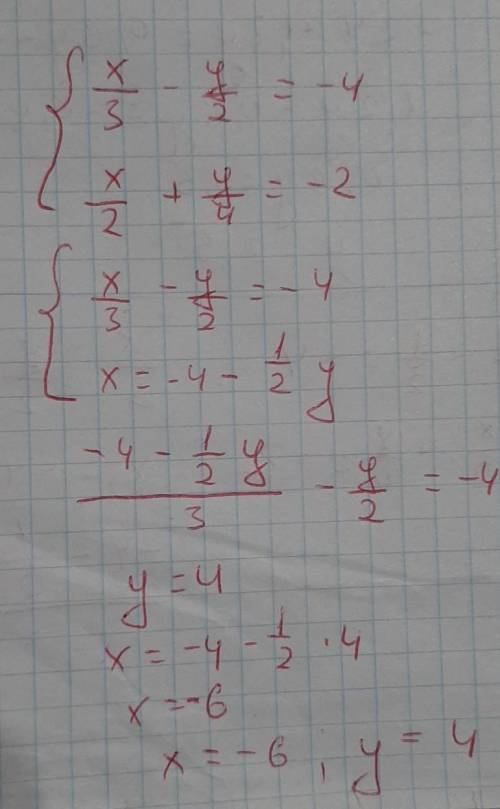 x/3 - y/2 = -4
x/2 + y/4 = -2
x/3 - y/2 = -4
x = -4 - 1/2 y
(-4 - 1/2 y)/3 - y/2 = -4
y = 4
x = -4 - 1/2 · 4
x = -6
x = -6 ; y = 4